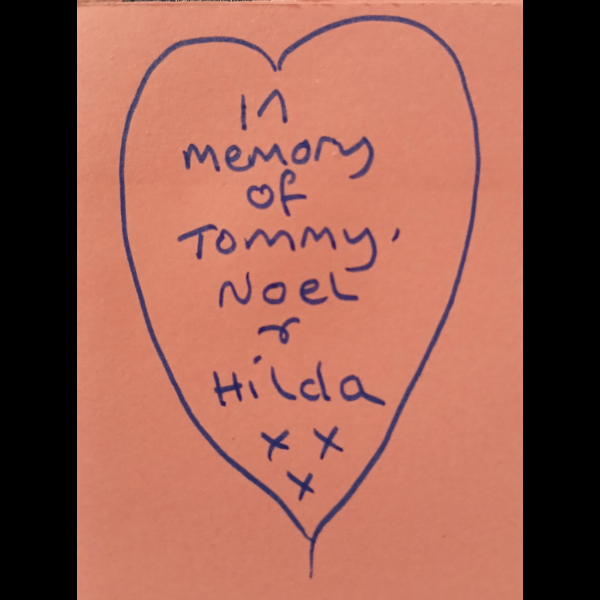 In
memory
of
Tommy,
Noel
&
Hilda
x x
x